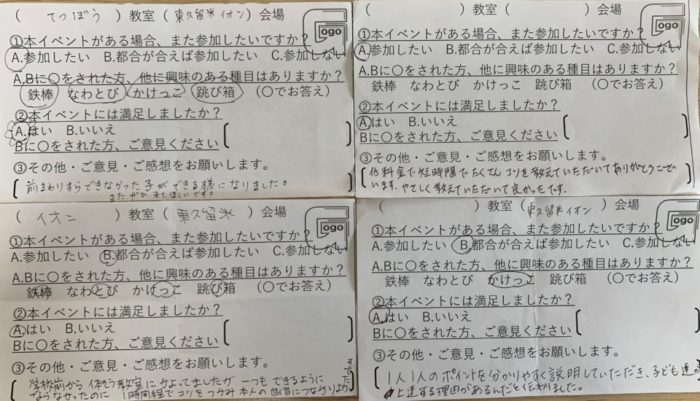 ( てつぼう )教室( 東久留米イオン )会場
ogo
①本イベントがある場合、また参加したいですか?
A.参加したい B.都合が合えば参加したい C.参加しない
A.Bに〇をされた方、他に興味のある種目はありますか?
鉄棒 なわとび かけっこ 跳び箱 (〇でお答え)
②本イベントには満足しましたか?
A.はい B.いいえ
Bに〇をされた方、ご意見ください
③その他・ご意見・ご感想をお願いします。
前まわりすらできなかった子ができる様になりました。
また
( )教室( )会場
ogo
①本イベントがある場合、また参加したいですか?
A.参加したい B.都合が合えば参加したい C.参加しない
A.Bに〇をされた方、他に興味のある種目はありますか?
鉄棒 なわとび かけっこ 跳び箱 (〇でお答え)
②本イベントには満足しましたか?
A.はい B.いいえ
Bに〇をされた方、ご意見ください
③その他・ご意見・ご感想をお願いします。
低料金で短時間でたくさんコツを教えていただいてありがとうござい
います。やさしく教えていただいて良かったです。
( イオン )教室( 東久留米 )会場
ogo
①本イベントがある場合、また参加したいですか?
A.参加したい B.都合が合えば参加したい C.参加しない
A.Bに〇をされた方、他に興味のある種目はありますか?
鉄棒 なわとび かけっこ 跳び箱 (〇でお答え)
②本イベントには満足しましたか?
A.はい B.いいえ
Bに〇をされた方、ご意見ください
③その他・ご意見・ご感想をお願いします。
学校前から体操教室にかよってましたが一つもできるように
ならなかったのに 1時間程でコツをつかみ本人の自信につながりました
( )教室( 東久留米イオン )会場
ogo
①本イベントがある場合、また参加したいですか?
A.参加したい B.都合が合えば参加したい C.参加しない
A.Bに〇をされた方、他に興味のある種目はありますか?
鉄棒 なわとび かけっこ 跳び箱 (〇でお答え)
②本イベントには満足しましたか?
A.はい B.いいえ
Bに〇をされた方、ご意見ください
③その他・ご意見・ご感想をお願いします。
1人1人のポイントを分かりやすく説明していただき、子ども達の
上達する理由があるんだと伝わりました。